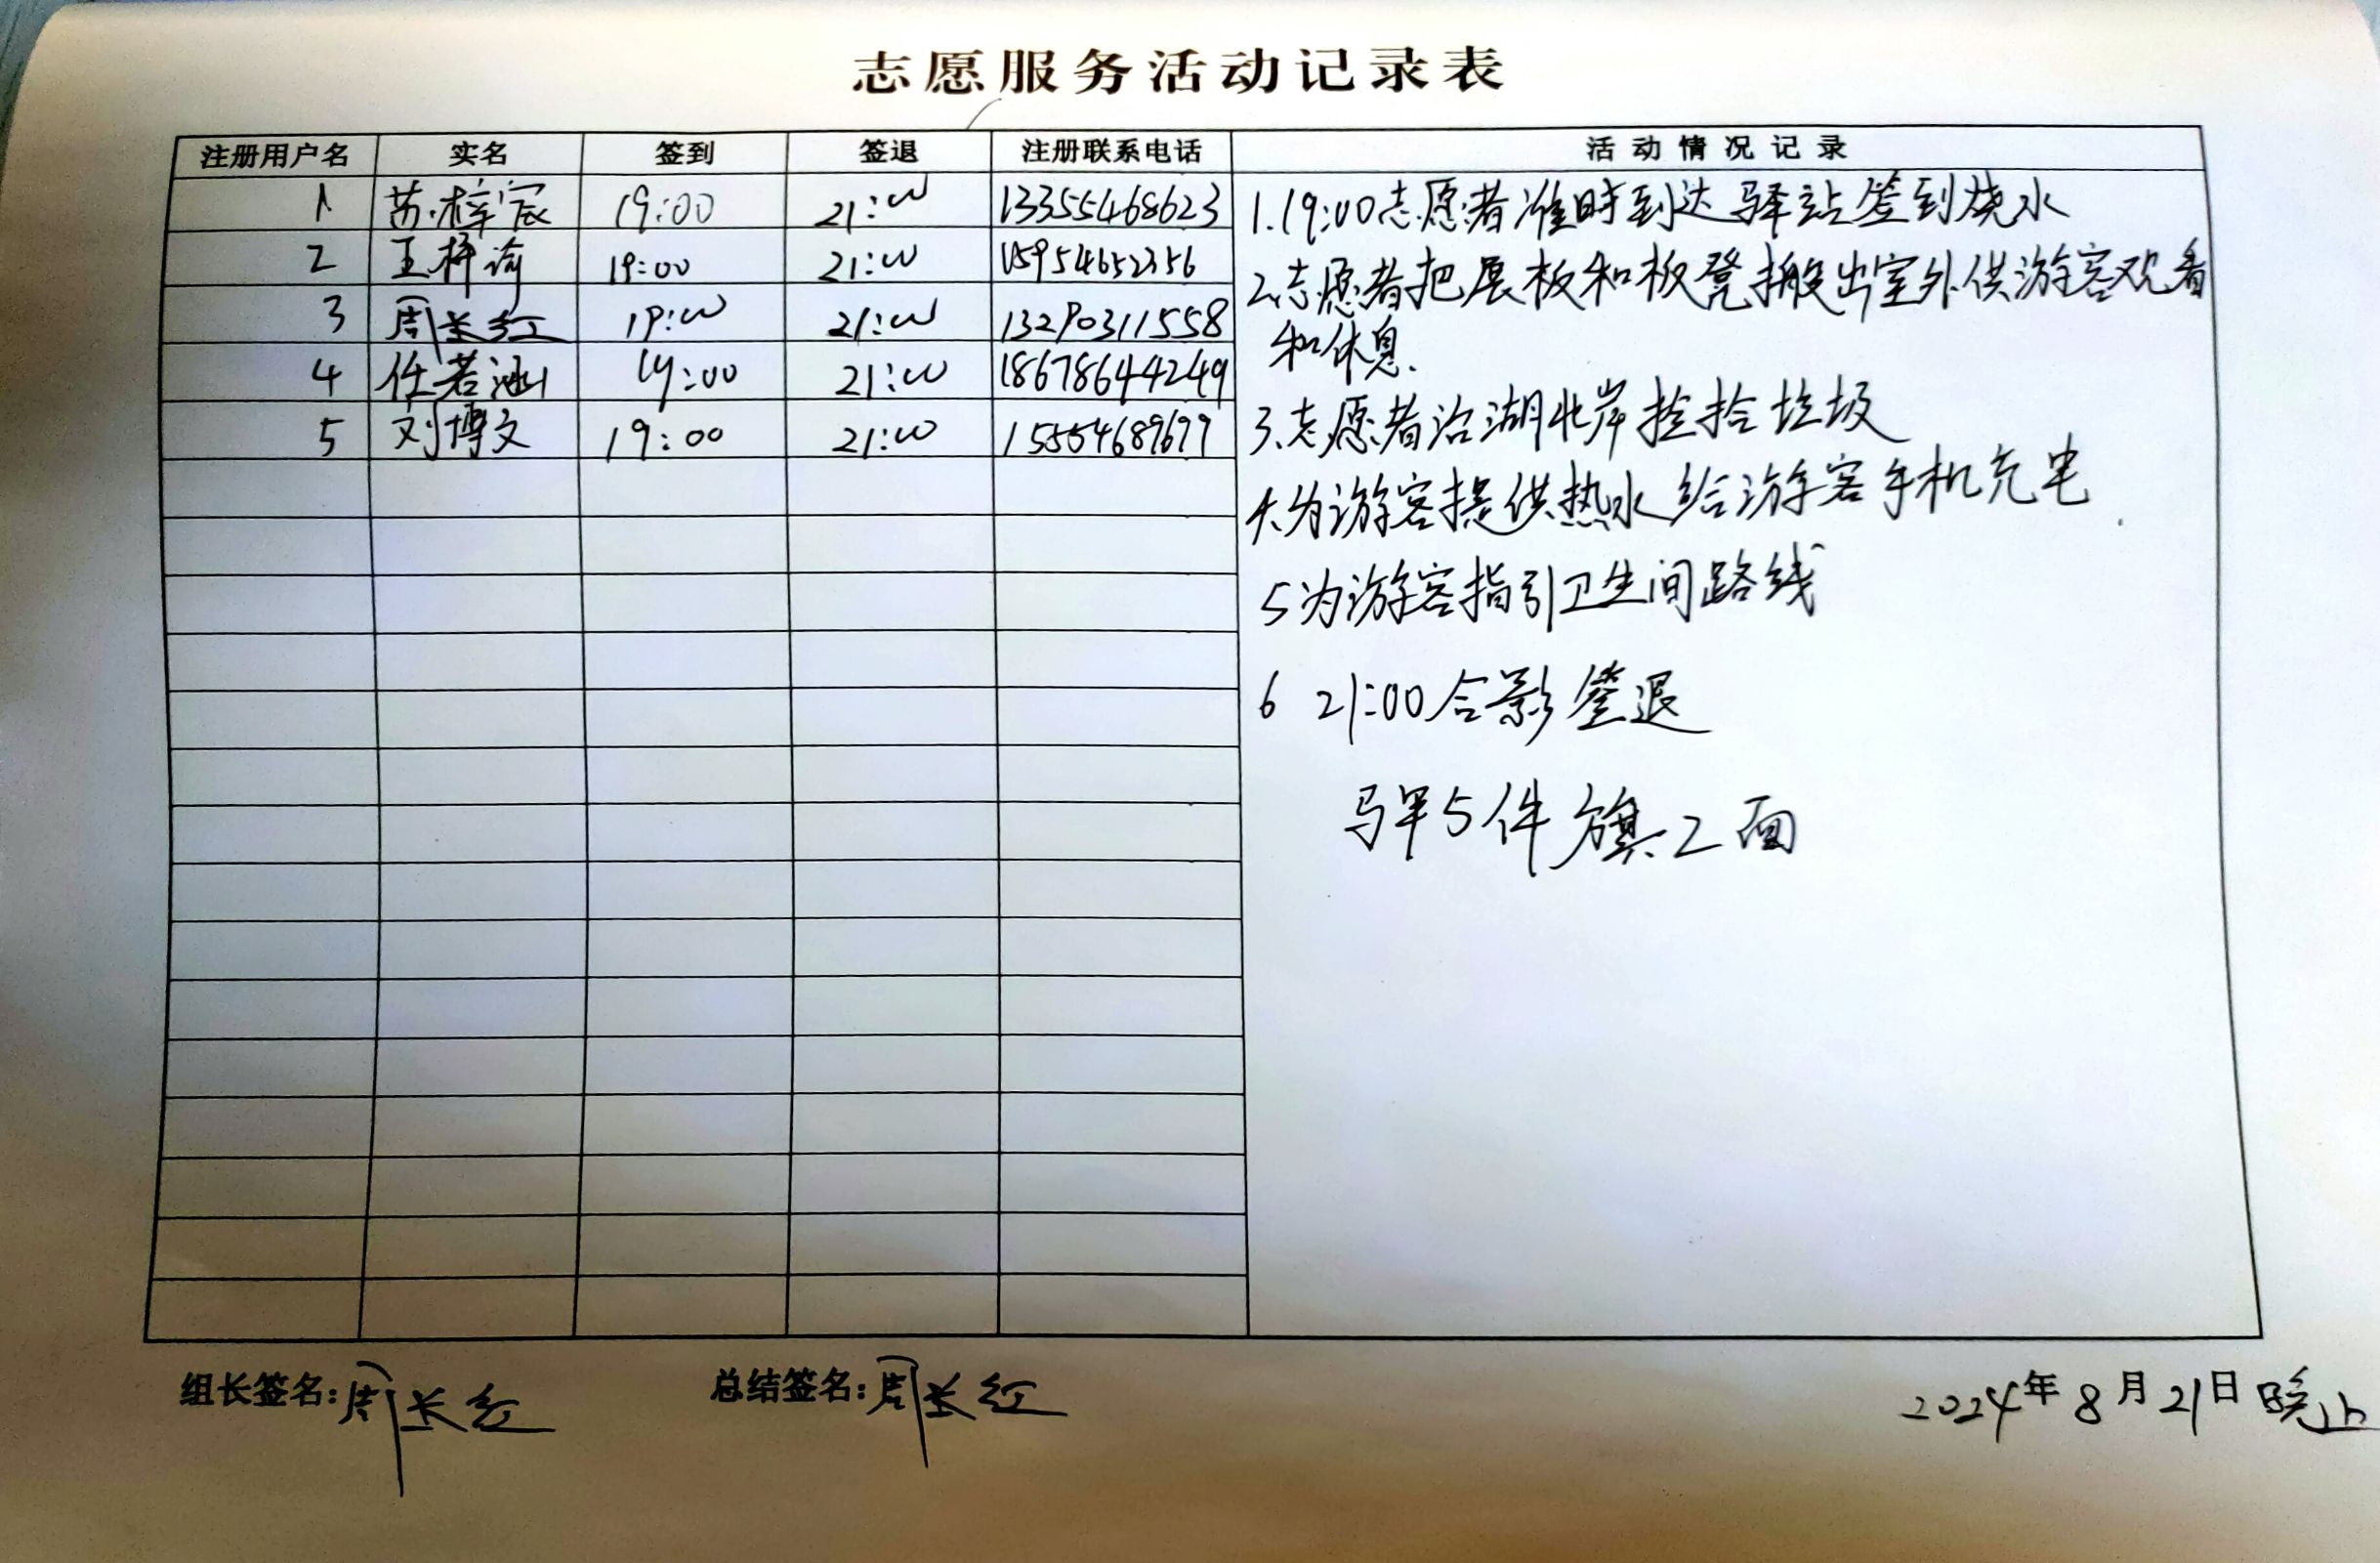 志愿服务活动记录表
注册用户名 实名 签到 签退 注册联系电话 活动情况记录
1 苏梓宸 19:00 21:00 13355468623
2 王梓谕 19:00 21:00 15954652356
3 周长红 19:00 21:00 13290311558
4 任若涵 19:00 21:00 18678644249
5 刘博文 19:00 21:00 15554689699
1.19:00志愿者准时到达驿站签到烧水
2、志愿者把展板和板凳搬出室外供游客观看
和休息.
3、志愿者沿湖北岸捡拾垃圾
4.为游客提供热水给游客手机充电
5为游客指引卫生间路线
6 21:00合影签退
马甲5件 旗2面
组长签名:周长红 总结签名:周长红 2024年8月21日晚上